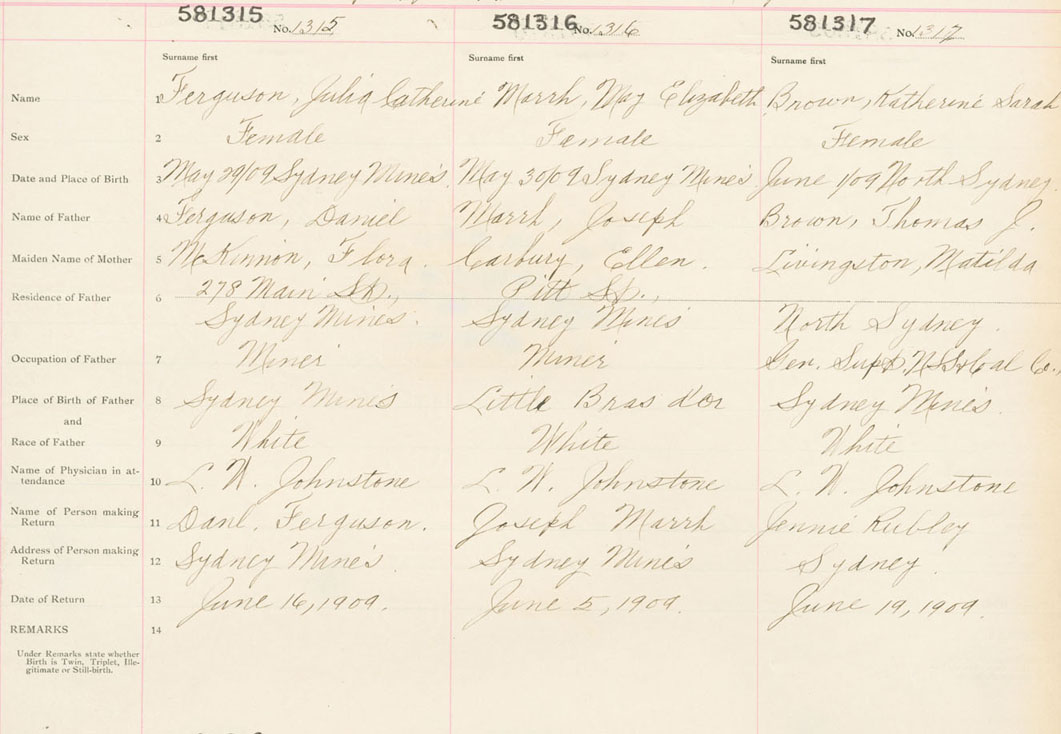 581315 No. 1315 581316 No. 1316 581317 No. 1317
Surname first Surname first Surname first
Name 1 Ferguson, Julia Catherine Marrh, May Elizabeth Brown, Katherine Sarah
Sex 2 Female Female Female
Date and Place of Birth 3 May 29/09 Sydney Mines. May 30/09 Sydney Mines June 1/09 North Sydney.
Name of Father 4 Ferguson, Daniel Marrh, Joseph Brown, Thomas J.
Maiden Name of Mother 5 McKinnon, Flora. Carbury, Ellen. Livingston, Matilda
Residence of Father 6 278 Main St., Pitt St.,
Sydney Mines. Sydney Mines North Sydney.
Occupation of Father 7 Miner Miner Gen. Supt. N.S. Coal Co.,
Place of Birth of Father 8 Sydney Mines Little Bras d'or Sydney Mines.
and
Race of Father 9 White White White
Name of Physician in at-
tendance 10 L. W. Johnstone L. W. Johnstone L. W. Johnstone
Name of Person making
Return 11 Danl. Ferguson. Joseph Marrh Jennie Rubley
Address of Person making
Return 12 Sydney Mines. Sydney Mines Sydney.
Date of Return 13 June 16, 1909. June 5, 1909. June 19, 1909.
REMARKS 14
Under Remarks state whether
Birth is Twin, Triplet, Ille-
gitimate or Still-birth.